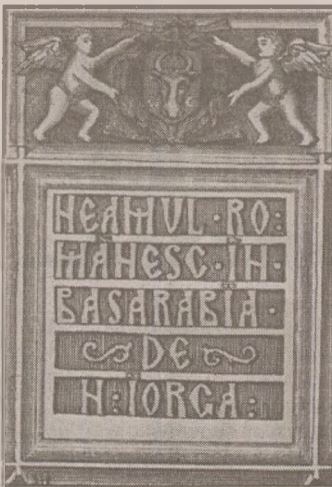 NEAMUL·RO:
MÂNESC·ÎN·
BASARABIA·
DE
N:IORGA: